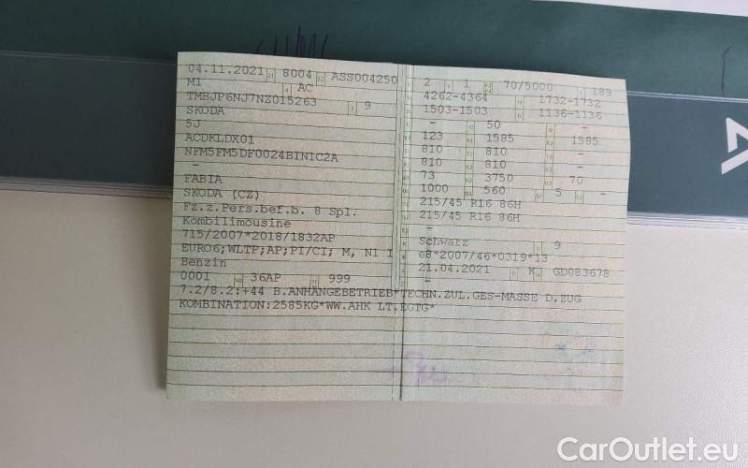 04.11.2021 8004 ASS004250
M1 AC
TMBJP6NJ7NZ015263 9
SKODA
5J
ACDKLDX01
NFM5FM5DF0024BIN1C2A
-
FABIA
SKODA (CZ)
Fz.z.Pers.bef.b. 8 Spl.
Kombilimousine
715/2007*2018/1832AP
EURO6;WLTP;AP;PI/CI; M, N1 I
Benzin
0001 36AP 999
2 1 70/5000 189
4262-4364 1732-1732
1503-1503 1136-1136
- 50 -
123 1585 1585
810 810 -
810 810 -
73 3750 70
1000 560 5 -
215/45 R16 86H
215/45 R16 86H
-
Schwarz 9
e8*2007/46*0319*13
21.04.2021 K GD083678
7.2/8.2:+44 B.ANHÄNGEBETRIEB*TECHN.ZUL.GES-MASSE D.ZUG
KOMBINATION:2585KG*WW.AHK LT.EGTG*
CarOutlet.eu